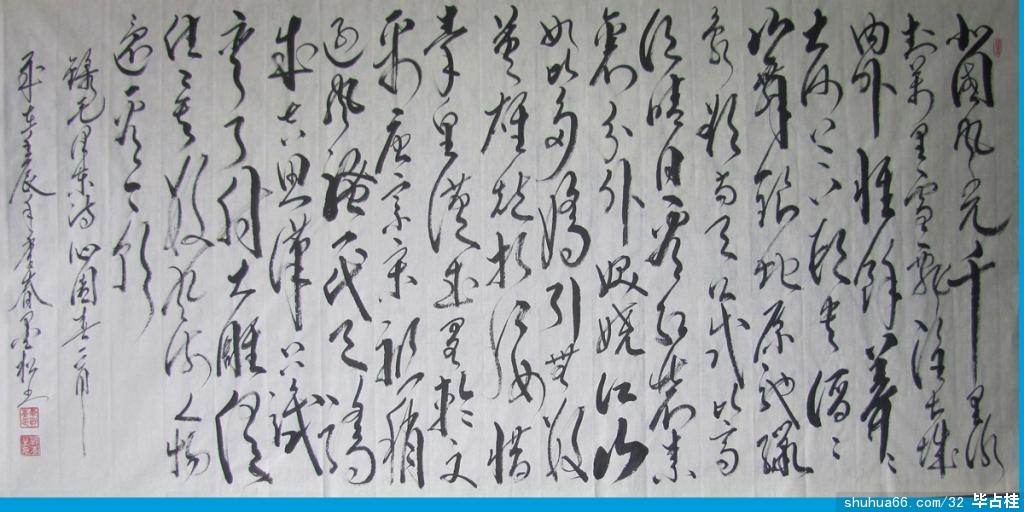 北國风光千里冰
封万里雪飘望长城
内外惟余莽々
大河上下顿失滔々
山舞银蛇原驰蜡
象欲与天公试比高
须晴日看红装素
裹分外妖娆江山
如此多娇引無数
英雄竞折腰惜
秦皇汉武略输文
采唐宗宋祖稍
逊风骚一代天骄
成吉思汗只识
弯弓射大雕俱
往矣数风流人物
还看今朝
录毛泽东诗沁园春一首
岁在壬辰年孟春墨松
shuhua66.com/32 毕占桂